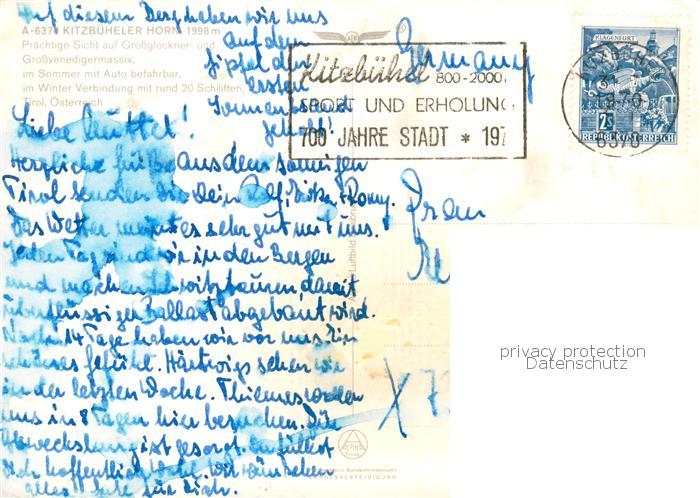 Auf diesem Berg haben wir uns
auf dem
Gipfel den
ersten
Sonnenbrand
geholt!
A-6370 KITZBÜHELER HORN 1998 m
Prächtige Sicht auf Großglockner- und
Großvenedigermassiv,
im Sommer mit Auto befahrbar,
im Winter Verbindung mit rund 20 Schiliften,
Tirol, Österreich
Kitzbühel 800-2000
SPORT UND ERHOLUNG
700 JAHRE STADT * 197
Germany
KLAGENFURT
2S
REPUBLIK ÖSTERREICH
6370
Liebe Muttel!
Herzliche Grüße aus dem sonnigen
Tirol senden Dir Dein Rolf, + Romy.
Das Wetter meint es sehr gut mit uns.
Jeden Tag sind wir in den Bergen
und machen damit
überflüssiger Ballast abgebaut wird.
14 Tage haben wir vor uns. Ein
schönes Gefühl. Hartwigs sehen wir
in der letzten Woche. Thiemes wollen
uns in 8 Tagen hier besuchen. Für
Abwechslung ist gesorgt. Du fühlst
Dich hoffentlich wohl. Wir wünschen
alles Gute für Dich.
Frau
X 7
Luftbild
ALPINE
privacy protection
Datenschutz